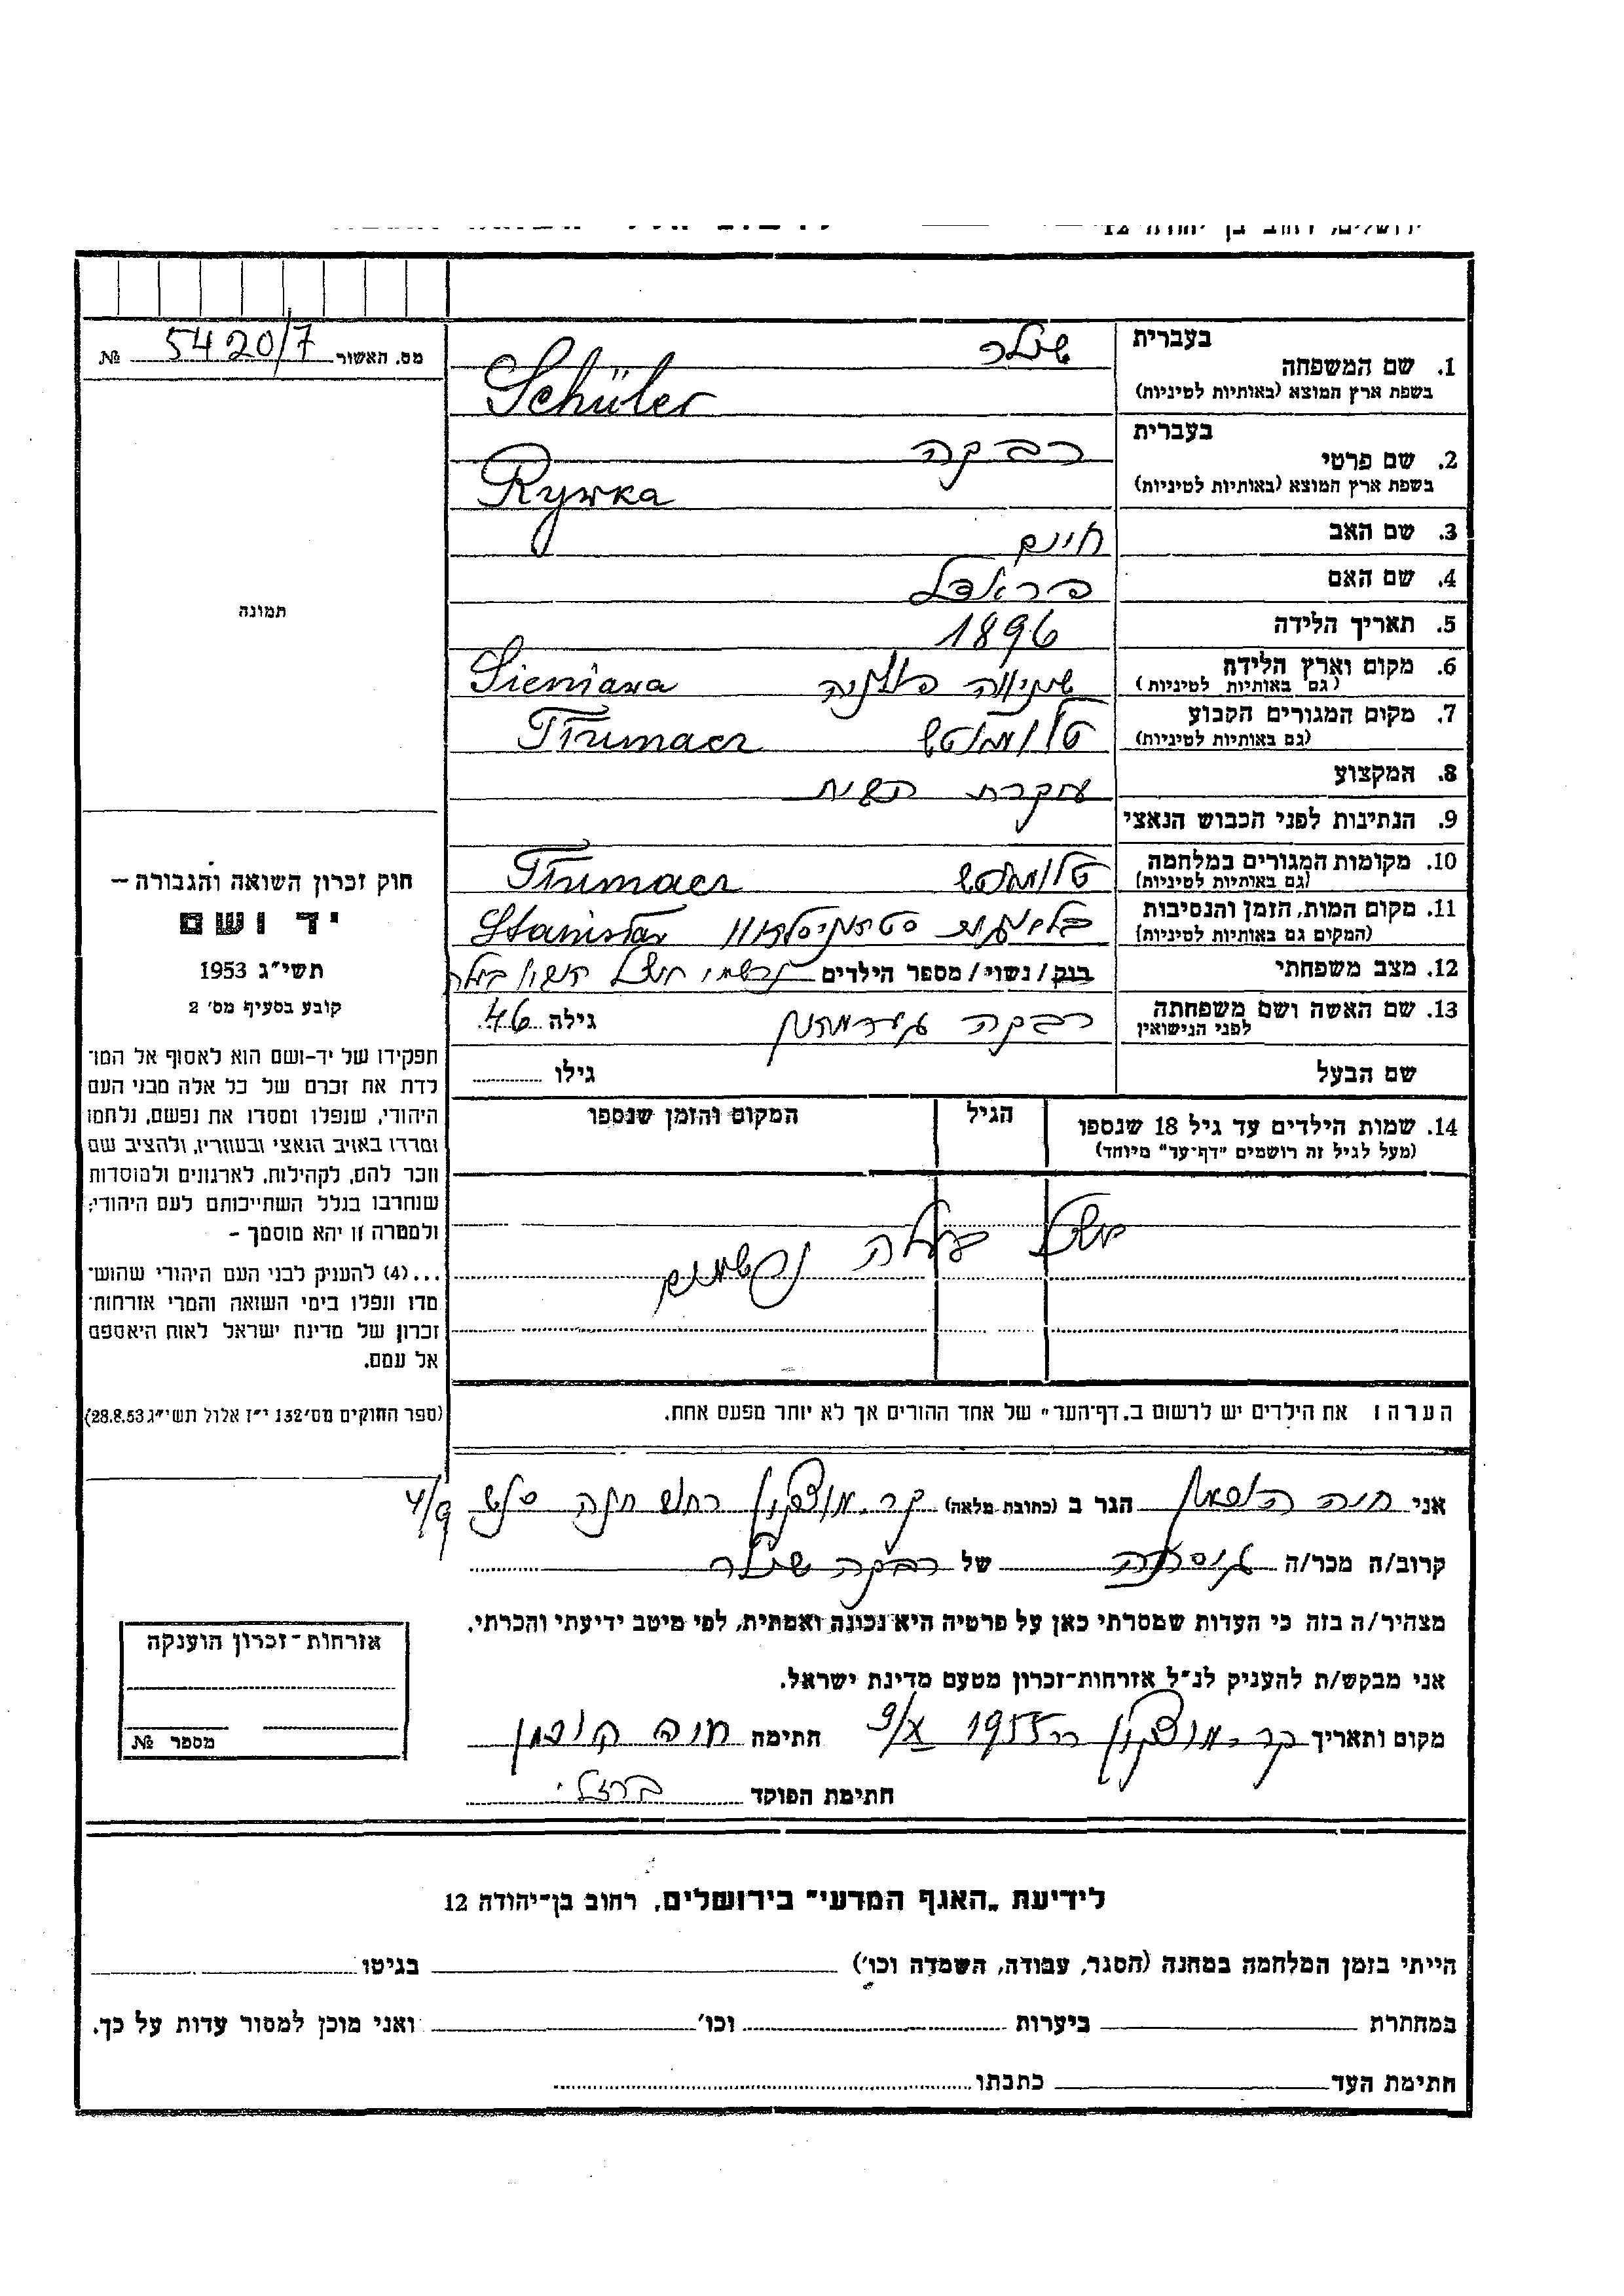 בעברית
שילר
1. שם המשפחה
בשפת ארץ המוצא (באותיות לטיניות)
Schüler
בעברית
רבקה
2. שם פרטי
בשפת ארץ המוצא (באותיות לטיניות)
Rywka
3. שם האב חיים
4. שם האם
5. תאריך הלידה 1896
6. מקום וארץ הלידה
(גם באותיות לטיניות)
Sieniawa
7. מקום המגורים הקבוע
(גם באותיות לטיניות)
Tłumacz
8. המקצוע עקרת הבית
9. הנתינות לפני הכבוש הנאצי
10. מקומות המגורים במלחמה
(גם באותיות לטיניות)
Tłumacz
11. מקום המות, הזמן והנסיבות
(המקום גם באותיות לטיניות)
Stanisław
12. מצב משפחתי
רוק / נשוי / מספר הילדים
13. שם האשה ושם משפחתה
לפני הנישואין
רבקה
גילה 46
שם הבעל
גילו
14. שמות הילדים עד גיל 18 שנספו
(מעל לגיל זה רושמים "דף־עד" מיוחד)
הגיל
המקום והזמן שנספו
הערה: את הילדים יש לרשום ב„דף־העד" של אחד ההורים אך לא יותר מפעם אחת.
אני חיה הגר ב (כתובת מלאה) קר. מוצקין
קרוב/ה מכר/ה של רבקה שילר
מצהיר/ה בזה כי העדות שמסרתי כאן על פרטיה היא נכונה ואמתית, לפי מיטב ידיעתי והכרתי.
אני מבקש/ת להעניק לנ"ל אזרחות־זכרון מטעם מדינת ישראל.
מקום ותאריך קר. מוצקין 1955 9/X חתימה חיה
חתימת הפוקד ברזלי
מס. האשור 5420/7 №
תמונה
חוק זכרון השואה והגבורה –
יד ושם
תשי"ג 1953
קובע בסעיף מס׳ 2
תפקידו של יד-ושם הוא לאסוף אל המו־
לדת את זכרם של כל אלה מבני העם
היהודי, שנפלו ומסרו את נפשם, נלחמו
ומרדו באויב הנאצי ובעוזריו, ולהציב שם
וזכר להם, לקהילות, לארגונים ולמוסדות
שנחרבו בגלל השתייכותם לעם היהודי;
ולמטרה זו יהא מוסמך –
...(4) להעניק לבני העם היהודי שהוש־
מדו ונפלו בימי השואה והמרי אזרחות־
זכרון של מדינת ישראל לאות היאספם
אל עמם.
(ספר החוקים מס׳ 132 י"ז אלול תשי"ג 28.8.53)
אזרחות־זכרון הוענקה
מספר №
לידיעת „האגף המדעי" בירושלים, רחוב בן־יהודה 12
הייתי בזמן המלחמה במחנה (הסגר, עבודה, השמדה וכו׳) בגיטו
במחתרת ביערות וכו׳ ואני מוכן למסור עדות על כך.
חתימת העד כתבתו